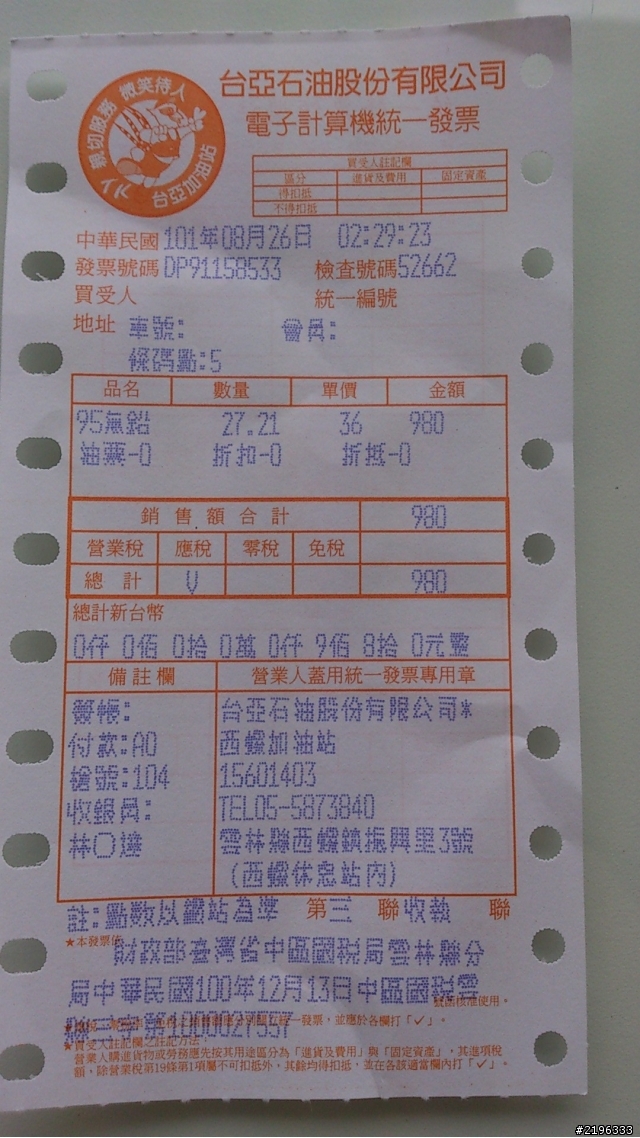 微笑待人
親切服務
台亞加油站
台亞石油股份有限公司
電子計算機統一發票
買受人註記欄
區分 進貨及費用 固定資產
得扣抵
不得扣抵
中華民國 101年08月26日 02:29:23
發票號碼 DP91158533 檢查號碼 52662
買受人 統一編號
地址 車號: 會員:
條碼點:5
品名 數量 單價 金額
95無鉛 27.21 36 980
油票-0 折扣-0 折抵-0
銷售額合計 980
營業稅 應稅 零稅 免稅
總計 V 980
總計新台幣
0仟 0佰 0拾 0萬 0仟 9佰 8拾 0元整
備註欄 營業人蓋用統一發票專用章
簽帳: 台亞石油股份有限公司*
付款:A0 西螺加油站
槍號:104 15601403
收銀員: TEL05-5873840
林○達 雲林縣西螺鎮振興里3號
(西螺休息站內)
註:點數以鐵站為準 第三聯 收執聯
★本發票依 財政部臺灣省中區國稅局雲林縣分
局中華民國100年12月13日中區國稅雲
號函核准使用。
縣三字第1000027557
統一發票,並應於各欄打「✓」。
★買受人註記欄之註記方法:
營業人購進貨物或勞務應先按其用途區分為「進貨及費用」與「固定資產」,其進項稅
額,除營業稅第19條第1項屬不可扣抵外,其餘均得扣抵,並在各該適當欄內打「✓」。
#2196333